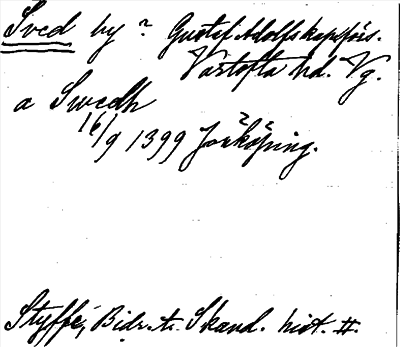 Sved by ? Gustaf Adolfs kappförs.
Vartofta hd. Vg.
a Swedh
16/9 1399 Jönköping.
Styffe, Bidr. t. Skand. hist. II.